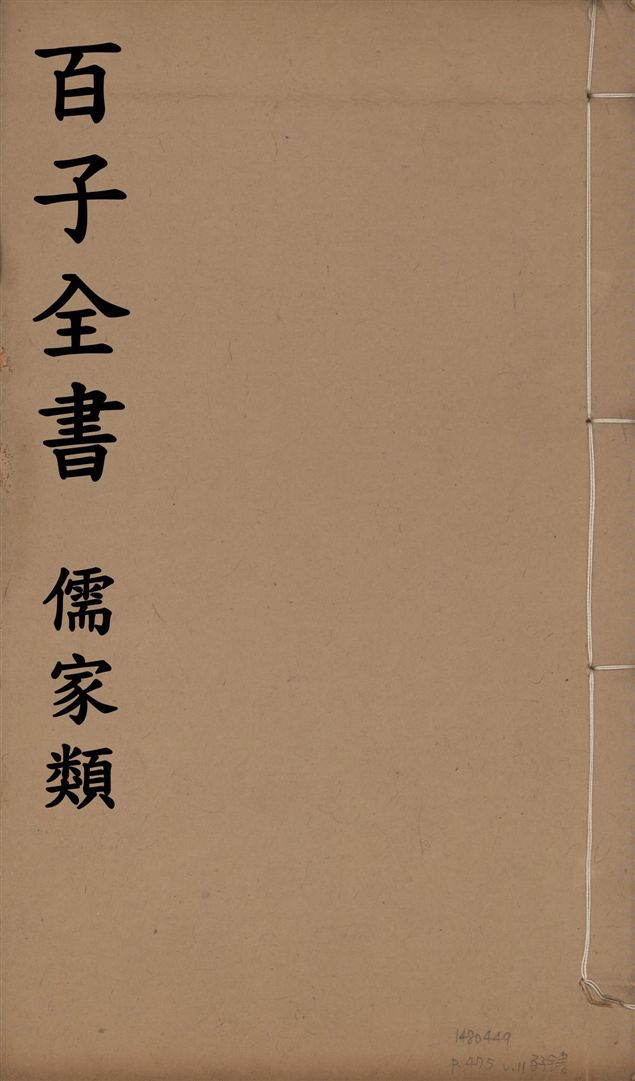 百子全書 儒家類
1480449
P.475 v.11 百子全書